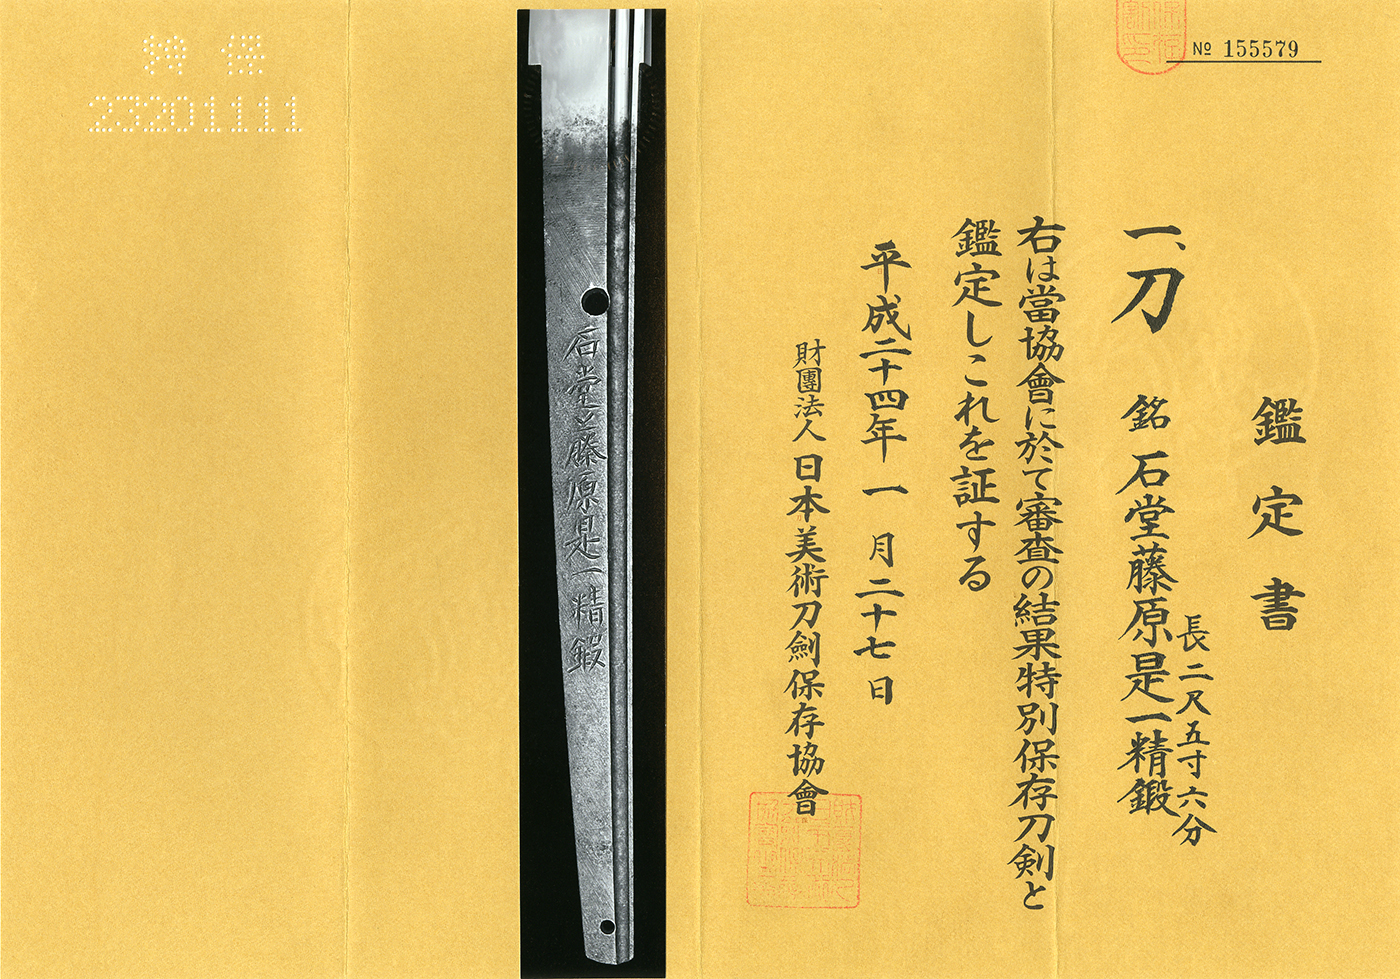 № 155579
鑑定書
一、刀 銘 石堂藤原是一精鍛
長二尺五寸六分
右は當協會に於て審査の結果特別保存刀剣と
鑑定しこれを証する
平成二十四年一月二十七日
財團法人日本美術刀劍保存協會
石堂藤原是一精鍛
特 保
23201111